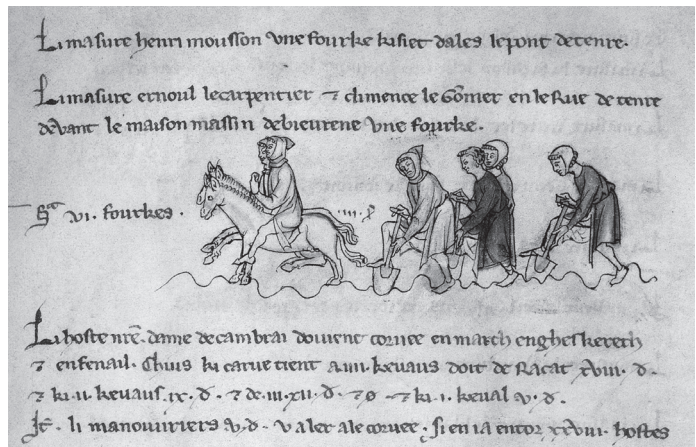 Li masure henri mousson vne fourke ki siet dales le pont de tenre.
Li masure ernoul le carpentier ⁊ climence le Gomer en le Rue de tenre
deuant le maison massin de bieurene vne fourke.
Sᵃ vi. fourkes.
Li hoste nrē. dame de cambrai doiuent coruee en march en gheskerech
⁊ en fenail. Chiuis ki carue tient a .iiii. keuaus doit de Racat xviii. d.
⁊ ki .ii. keuaus .ix. d. ⁊ de .iii. xii. d. ⁊ ki .i. keual v. d.
It̄. li manouuriers v. d. ⁊ aler a le coruee. Si en i a entor xxviii. hostes